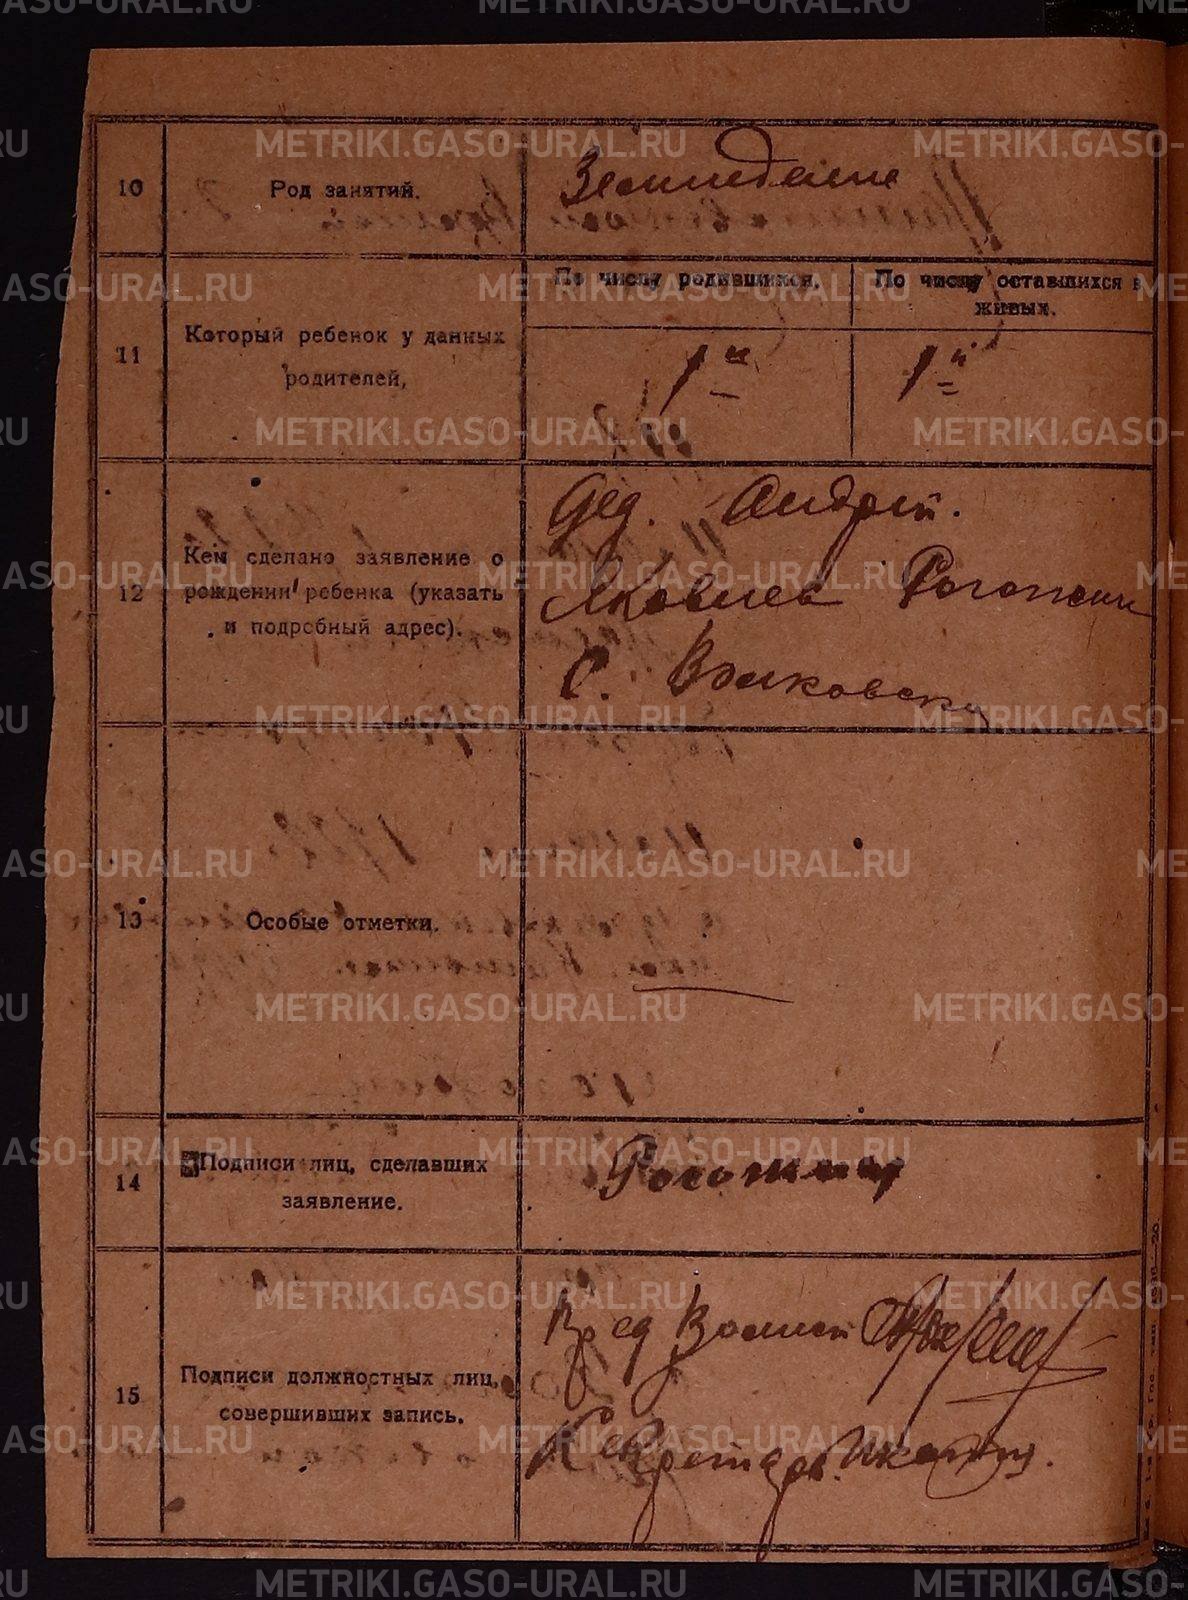 10
Род занятий.
Земледелие
11
Который ребенок у данных
родителей,
По числу родившихся.
По числу оставшихся в
живых.
1й
1й
12
Кем сделано заявление о
рождении ребенка (указать
и подробный адрес).
Дед. Андрей.
Яковлев Рогожин
С. Волковско
13
Особые отметки.
14
Подписи лиц, сделавших
заявление.
Рогожин
15
Подписи должностных лиц,
совершивших запись.
Пред
Секретарь
METRIKI.GASO-URAL.RU